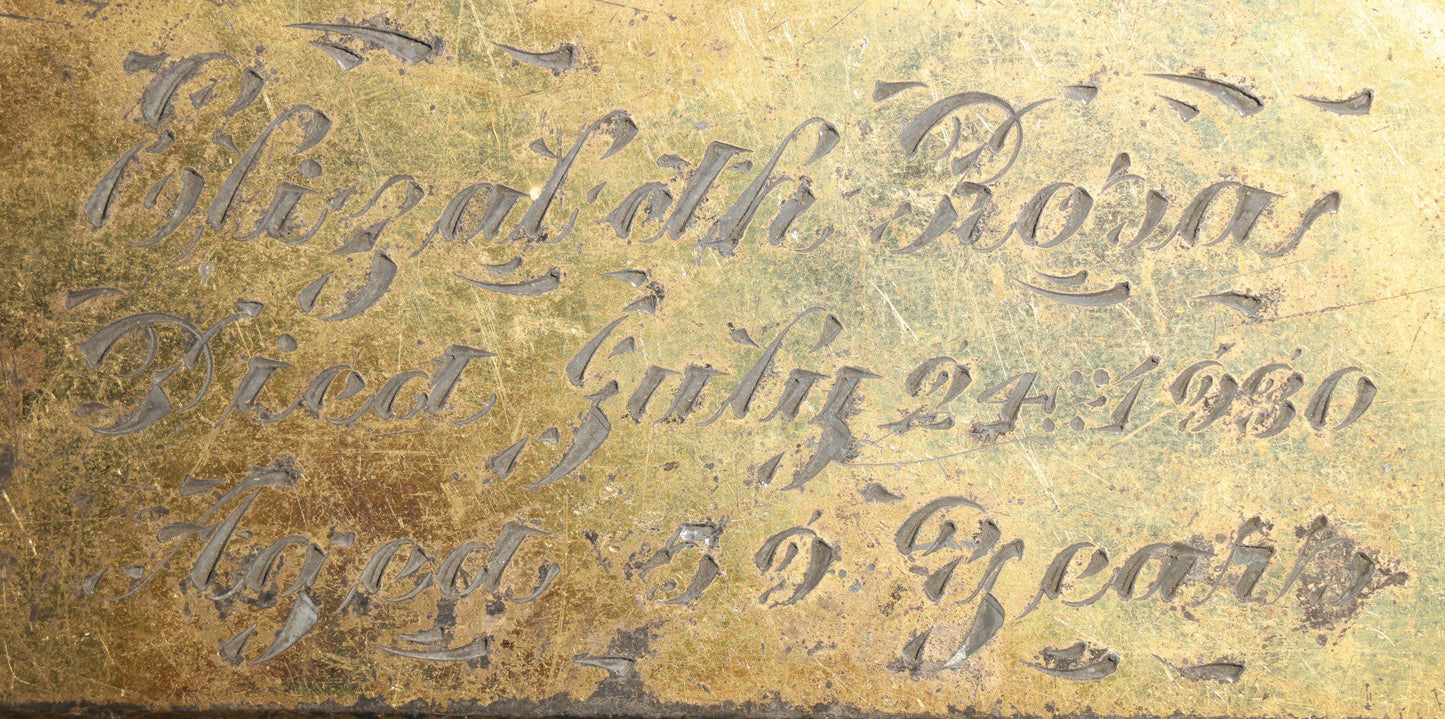 Elizabeth Rosa
Died July 24th: 1930
Aged 59 Years